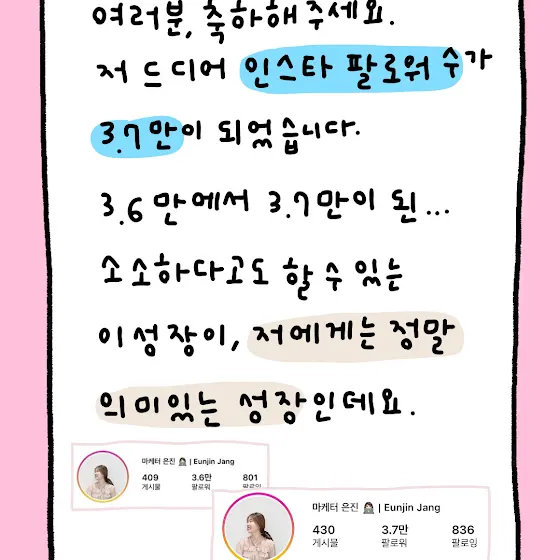 여러분, 축하해주세요.
저 드디어 인스타 팔로워 수가
3.7만이 되었습니다.
3.6만에서 3.7만이 된...
소소하다고도 할 수 있는
이 성장이, 저에게는 정말
의미있는 성장인데요.
마케터 은진 👩🏻‍💻 | Eunjin Jang
409 3.6만 801
게시물 팔로워 팔로잉
마케터 은진 👩🏻‍💻 | Eunjin Jang
430 3.7만 836
게시물 팔로워 팔로잉